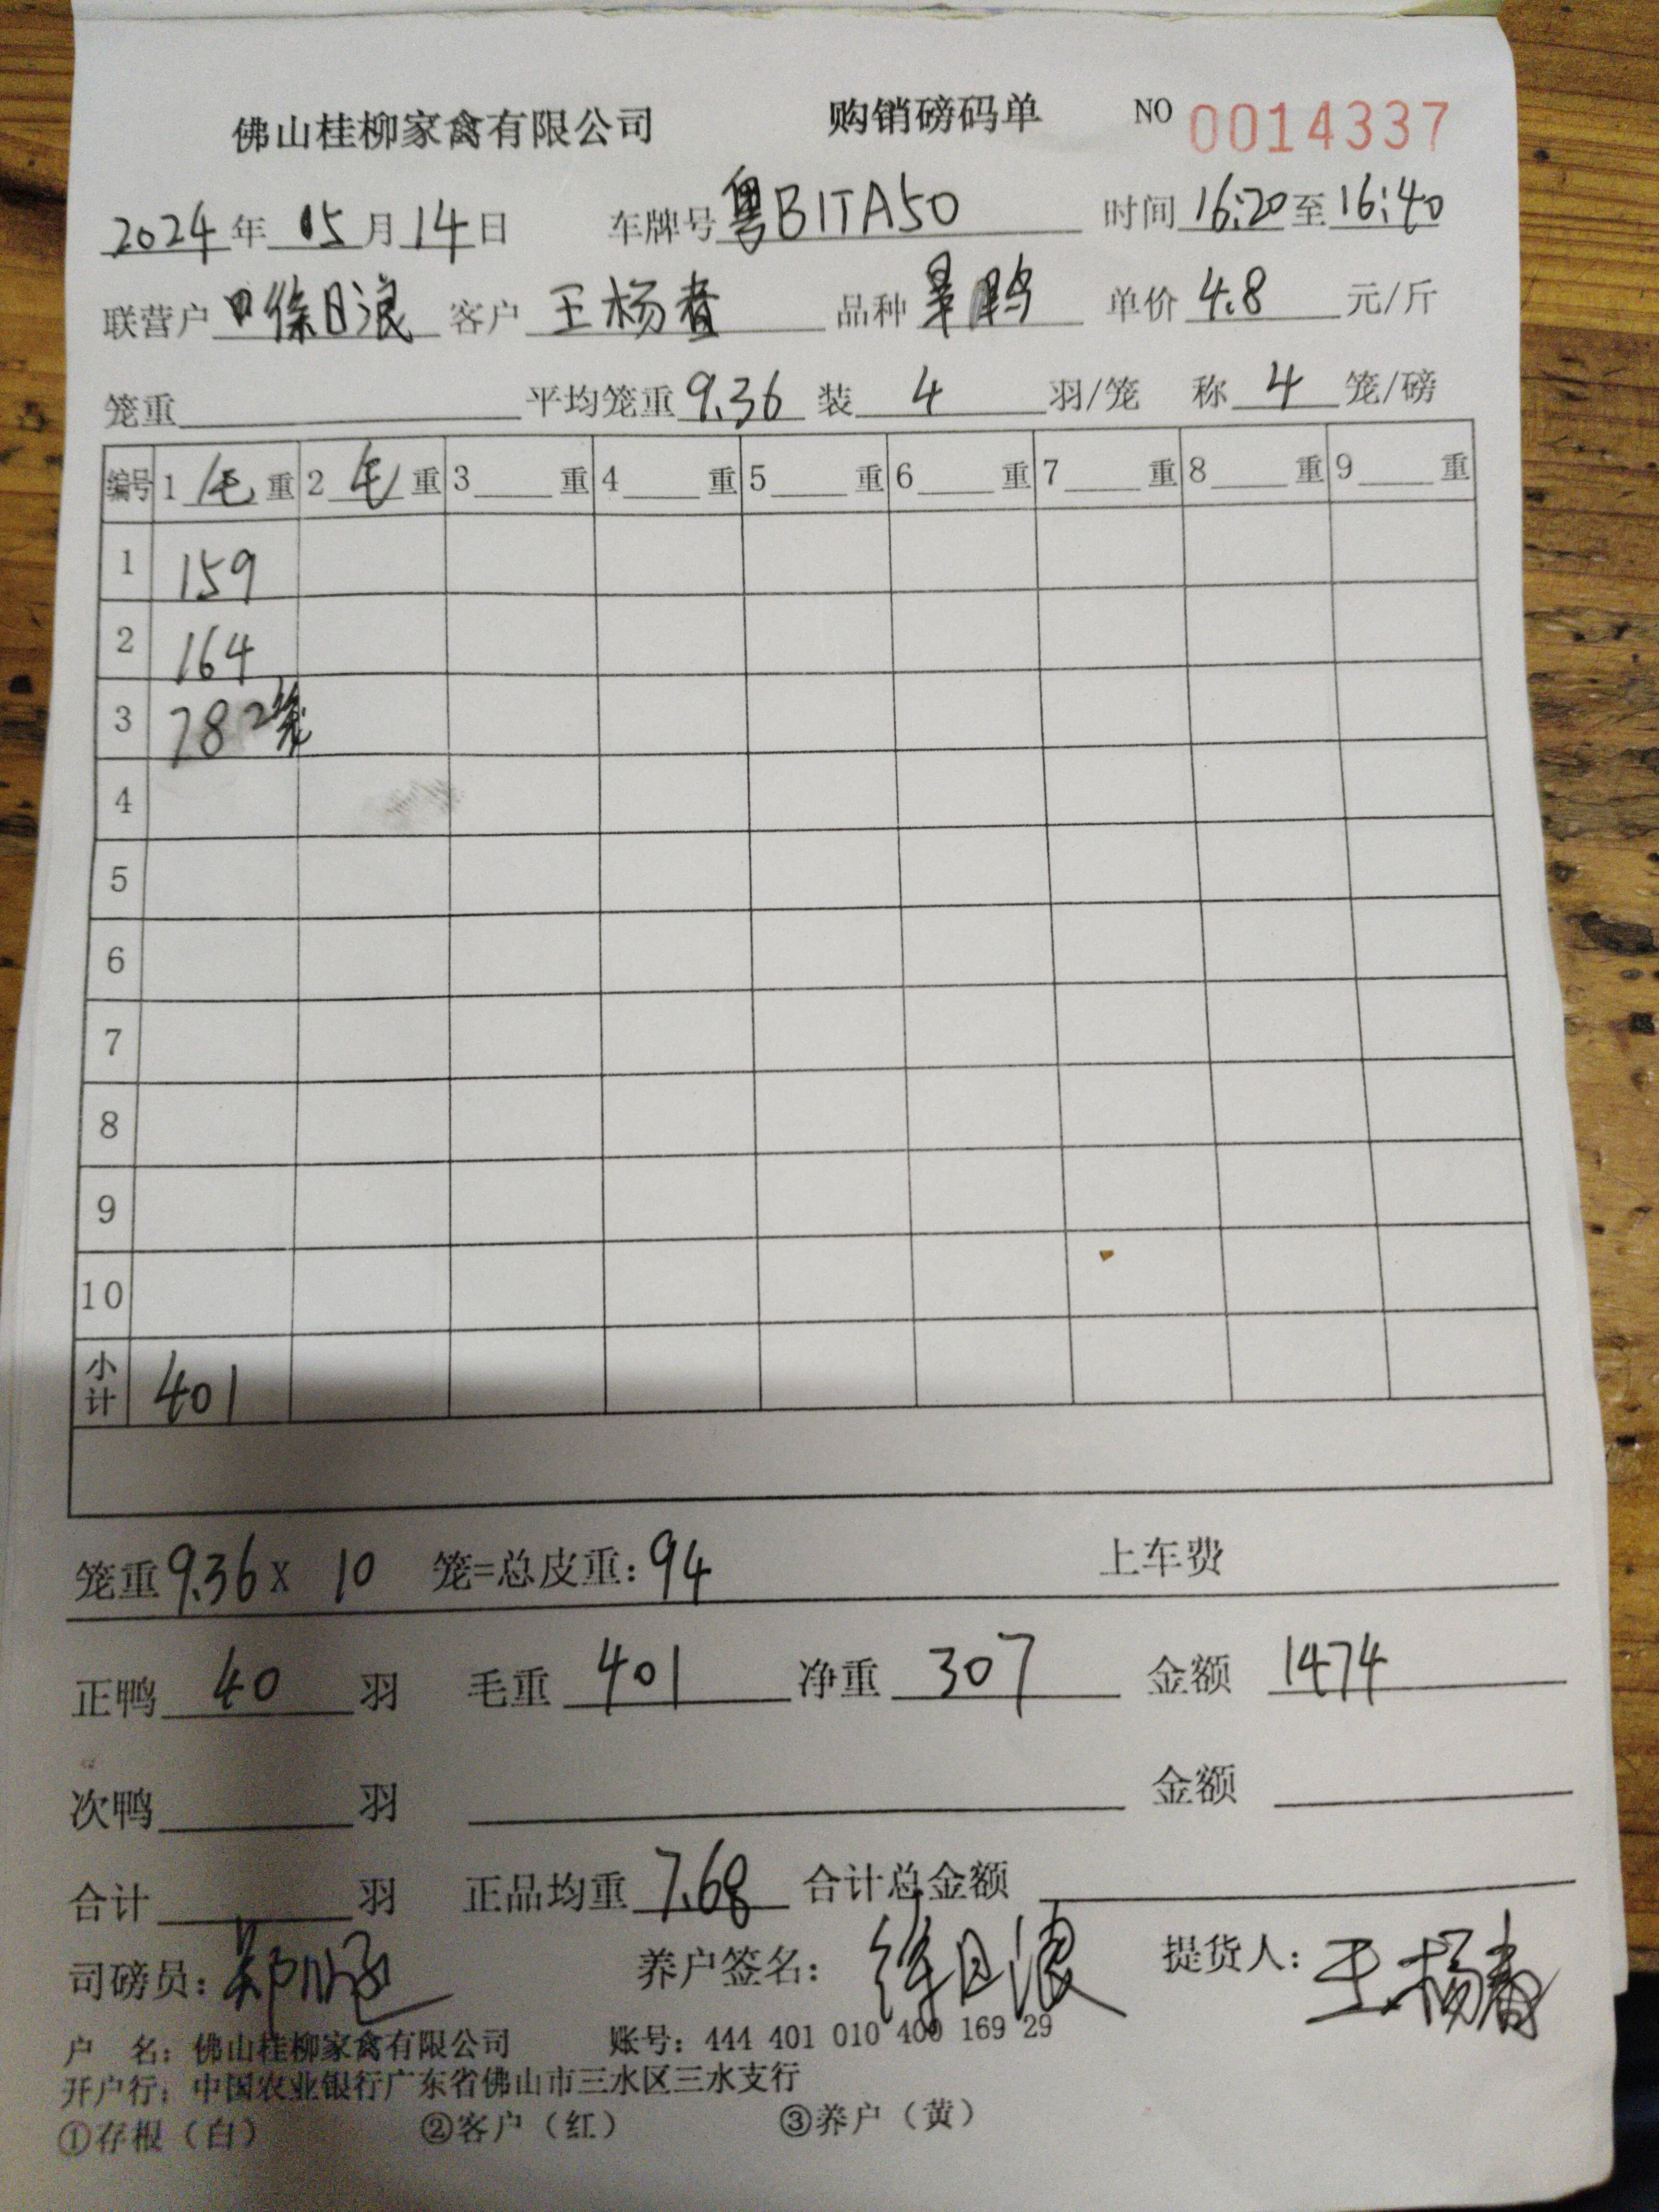 佛山桂柳家禽有限公司 购销磅码单 NO 0014337
2024年 05月14日 车牌号 粤B1TA50 时间 16:20至16:40
联营户 徐日浪 客户 王杨 品种 单价 4.8 元/斤
笼重 平均笼重 9.36 装 4 羽/笼 称 4 笼/磅
编号 1 毛 重 2 毛 重 3 重 4 重 5 重 6 重 7 重 8 重 9 重
1 159
2 164
3 78 2笼
4
5
6
7
8
9
10
小计 401
笼重 9.36 X 10 笼=总皮重: 94 上车费
正鸭 40 羽 毛重 401 净重 307 金额 1474
次鸭 羽 金额
合计 羽 正品均重 7.68 合计总金额
司磅员: 养户签名: 徐日浪 提货人: 王杨
户 名: 佛山桂柳家禽有限公司 账号: 444 401 010 400 169 29
开户行: 中国农业银行广东省佛山市三水区三水支行
①存根（白） ②客户（红） ③养户（黄）